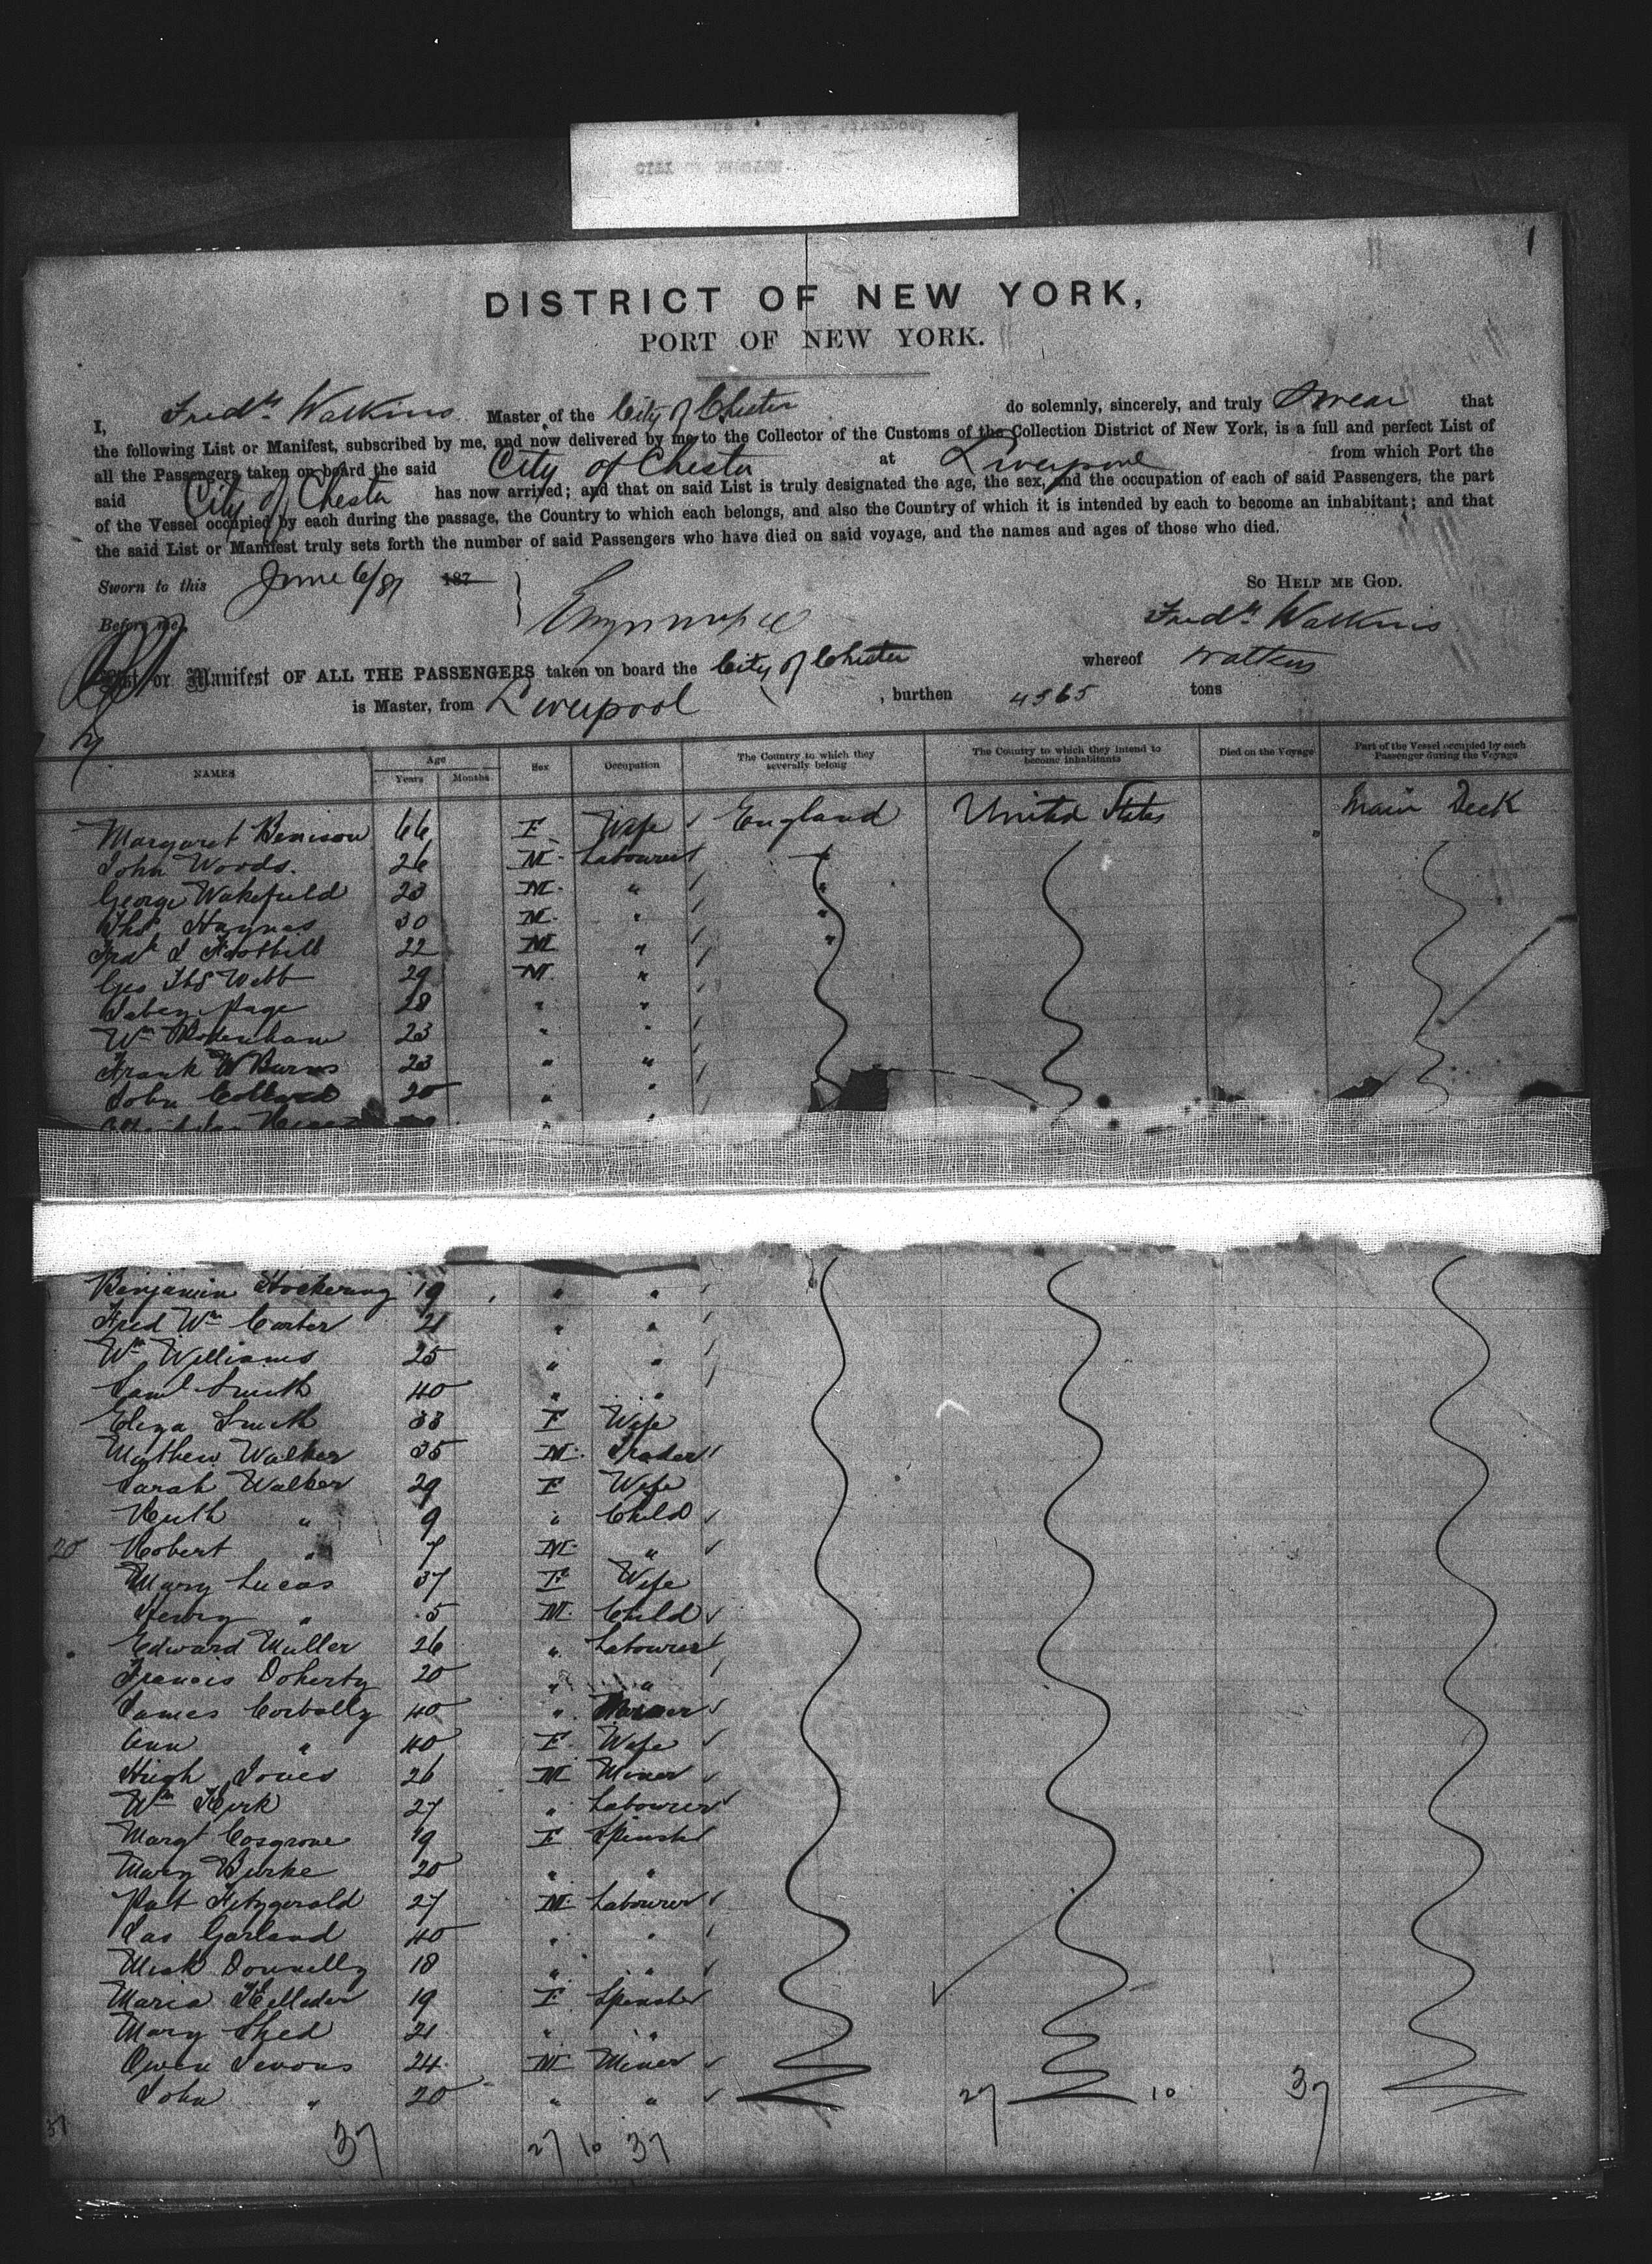 1
DISTRICT OF NEW YORK,
PORT OF NEW YORK.
I, Fredk Watkins Master of the City of Chester do solemnly, sincerely, and truly Swear that
the following List or Manifest, subscribed by me, and now delivered by me to the Collector of the Customs of the Collection District of New York, is a full and perfect List of
all the Passengers taken on board the said City of Chester at Liverpool from which Port the
said City of Chester has now arrived; and that on said List is truly designated the age, the sex, and the occupation of each of said Passengers, the part
of the Vessel occupied by each during the passage, the Country to which each belongs, and also the Country of which it is intended by each to become an inhabitant; and that
the said List or Manifest truly sets forth the number of said Passengers who have died on said voyage, and the names and ages of those who died.
Sworn to this June 6/81 187 So Help me God.
Before me, Fredk Watkins
List or Manifest OF ALL THE PASSENGERS taken on board the City of Chester whereof Watkins
is Master, from Liverpool , burthen 4565 tons
NAMES Age Years Months Sex Occupation The Country to which they severally belong The Country to which they intend to become inhabitants Died on the Voyage Part of the Vessel occupied by each Passenger during the Voyage
Margaret Benison 66 F Wife England United States Main Deck
John Woods. 26 M Labourer
George Wakefield 23 M. "
Thos Haynes 30 M. "
22 M "
Geo Thos Webb 29 M. "
Page 28 " "
Wm 23 " "
Frank W Burns 23 " "
John 20 " "
Benjamin Hockering 19 " "
Fred Wm Carter 21 " "
Wm Williams 25 " "
Saml Smith 40 " "
Eliza Smith 33 F Wife
Mathew Walker 35 M. Trader
Sarah Walker 29 F Wife
Ruth " 9 " Child
20 Robert " 7 M. "
Mary Lucas 37 F Wife
Henry " 5 M. Child
Edward Muller 26 " Labourer
Francis Doherty 20 " "
James Corbally 40 "
Ann " 40 F. Wife
Hugh Jones 26 M Miner
Wm Kirk 27 " Labourer
Margt Cosgrove 19 F Spinster
Mary Burke 20 " "
Pat Fitzgerald 27 M Labourer
Jas Garland 40 " "
Mick Donnelly 18 " "
Maria 19 F Spinster
Mary Shed 21 " "
Owen Jevons 24 M Miner
John " 20 " " 27 10 37
37 37 27 10 37